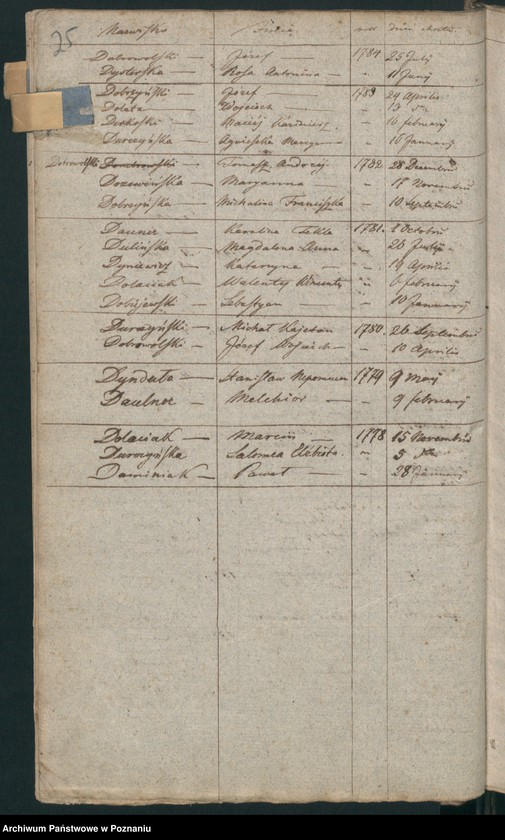 25
Nazwisko Imię rok dzień chrztu
Dobrowolski — Józef — 1784 25 July
Dysterska — Rosa Antonina — " 11 Juny
Dobrzyński — Józef — 1783 24 Aprilis
Dolata — Wojciech — " 13 dto
Maciej Kazimierz — " 16 february
Duszyńska — Agnieszka — " 16 January
Dobrowolski — Tomasz Andrzej 1782 28 Decembris
Maryanna — " 17 Novembris
Dobrzyńska — Michalina Franciszka — " 10 Septembris
Dauner — Karolina Tekla 1781 2 Octobris
Dulińska — Magdalena Anna — " 20 July
Dyniewicz — Katarzyna — " 19 Aprilis
Dolaciak — Walenty " 6 february
Sebastyan — " 10 January
Duszyński — Michał Kajetan 1780 26 Septembris
Dobrowolski — Józef " 10 Aprilis
Dynduta — Stanisław Nepomucen 1779 9 May
Daulner — Melchior — " 9 february
Dolaciak — Marcin — 1778 15 Novembris
Salomea Elżbieta " 5 dto
Daminiak — Paweł — " 28 January
Archiwum Państwowe w Poznaniu